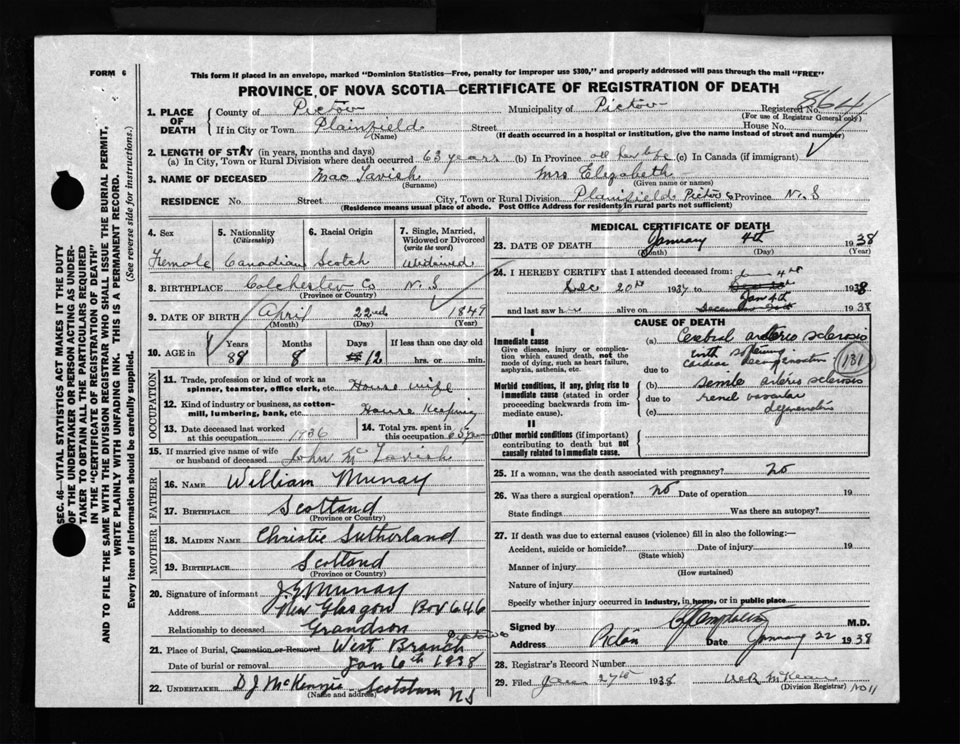 FORM 6
This form if placed in an envelope, marked "Dominion Statistics—Free, penalty for improper use $300," and properly addressed will pass through the mail "FREE"
PROVINCE OF NOVA SCOTIA—CERTIFICATE OF REGISTRATION OF DEATH
SEC. 46—VITAL STATISTICS ACT MAKES IT THE DUTY OF THE UNDERTAKER OR PERSON ACTING AS UNDERTAKER TO OBTAIN ALL THE PARTICULARS REQUIRED IN THE "CERTIFICATE OF REGISTRATION OF DEATH" AND TO FILE THE SAME WITH THE DIVISION REGISTRAR WHO SHALL ISSUE THE BURIAL PERMIT.
WRITE PLAINLY WITH UNFADING INK. THIS IS A PERMANENT RECORD.
Every item of information should be carefully supplied. (See reverse side for instructions.)
1. PLACE OF DEATH County of Pictou Municipality of Pictou Registered No. 864
(For use of Registrar General only)
If in City or Town Plainfield Street House No.
(Name) (If death occurred in a hospital or institution, give the name instead of street and number)
2. LENGTH OF STAY (in years, months and days)
(a) In City, Town or Rural Division where death occurred 63 years (b) In Province all her life (c) In Canada (if immigrant)
3. NAME OF DECEASED Mac Tavish Mrs Elizabeth
(Surname) (Given name or names)
RESIDENCE No. Street City, Town or Rural Division Plainfield Pictou Co Province N.S
(Residence means usual place of abode. Post Office Address for residents in rural parts not sufficient)
4. Sex 5. Nationality (Citizenship) 6. Racial Origin 7. Single, Married, Widowed or Divorced (write the word)
Female Canadian Scotch Widowed
8. BIRTHPLACE Colchester Co N.S
(Province or Country)
9. DATE OF BIRTH April 22nd 1849
(Month) (Day) (Year)
10. AGE in Years Months Days If less than one day old
88 8 12 hrs. or min.
OCCUPATION
11. Trade, profession or kind of work as spinner, teamster, office clerk, etc. House wife
12. Kind of industry or business, as cotton-mill, lumbering, bank, etc. House Keeping
13. Date deceased last worked at this occupation 1936 14. Total yrs. spent in this occupation
15. If married give name of wife or husband of deceased John McTavish
FATHER
16. NAME William Murray
17. BIRTHPLACE Scotland
(Province or Country)
MOTHER
18. MAIDEN NAME Christie Sutherland
19. BIRTHPLACE Scotland
(Province or Country)
20. Signature of informant Murray
Address New Glasgow Box 646
Relationship to deceased Grandson
21. Place of Burial, Cremation or Removal West Branch Pictou Co
Date of burial or removal Jan 6th 1938
22. UNDERTAKER D J McKenzie Scotsburn NS
(Name and address)
MEDICAL CERTIFICATE OF DEATH
23. DATE OF DEATH January 4th 1938
(Month) (Day) (Year)
24. I HEREBY CERTIFY that I attended deceased from:
Dec 20th 1937 to Jan 4th 1938
and last saw her alive on Jan 4th 1938
CAUSE OF DEATH
I
Immediate cause
Give disease, injury or complication which caused death, not the mode of dying, such as heart failure, asphyxia, asthenia, etc.
(a) Cerebral arterio sclerosis
with softening
due to cardiac decompensation 131
Morbid conditions, if any, giving rise to immediate cause (stated in order proceeding backwards from immediate cause).
(b) senile arterio sclerosis
due to renal vascular
(c) degeneration
II
Other morbid conditions (if important) contributing to death but not causally related to immediate cause.
25. If a woman, was the death associated with pregnancy? no
26. Was there a surgical operation? No Date of operation 19
State findings Was there an autopsy?
27. If death was due to external causes (violence) fill in also the following:—
Accident, suicide or homicide? Date of injury 19
(State which)
Manner of injury
(How sustained)
Nature of injury
Specify whether injury occurred in industry, in home, or in public place
Signed by M.D.
Address Pictou Date January 22 1938
28. Registrar's Record Number
29. Filed Jan 27th 1938
(Division Registrar)